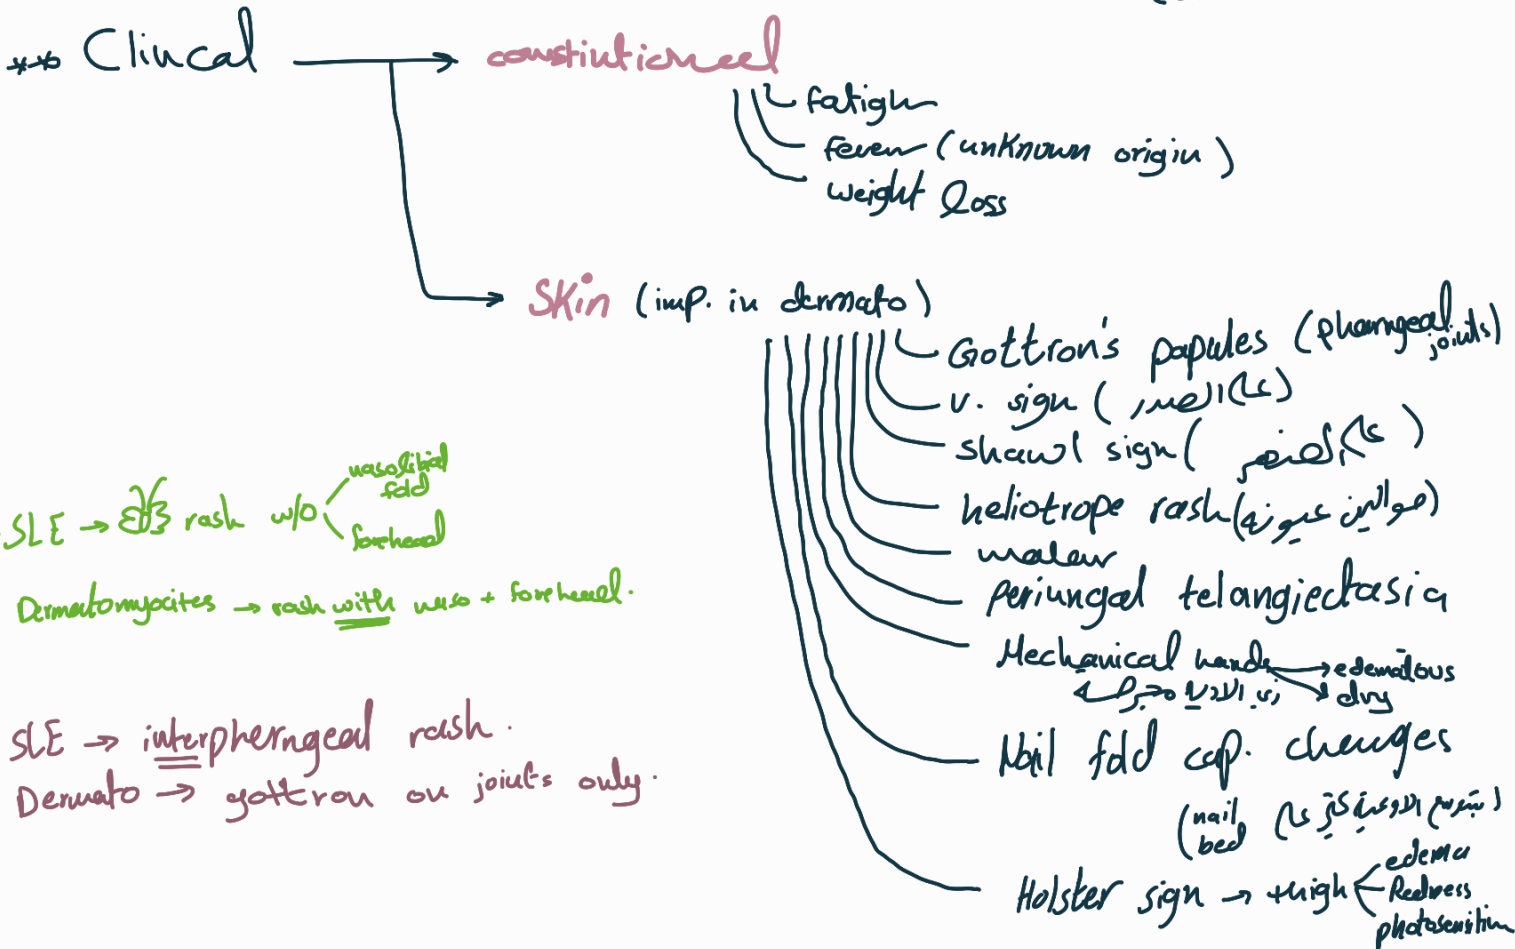 Clincal → constiutioneel
fatigu
fever (unknown origin)
weight loss
Skin (imp. in dermato)
Gottron's papules (pharngeal joints)
v. sign (عالصدر)
shawl sign (عال)
heliotrope rash (حوالين عيونه)
malar
periungal telangiectasia
Mechanical hands → edematous
dry
زي الايد
Nail fold cap. changes
(nail bed
Holster sign → thigh
edema
Redness
photosensitiv
SLE → rash w/o
nasolibial fold
forehead
Dermatomyocites → rash with naso + forehead.
SLE → interpherngeal rash.
Dermato → gottron on joints only.